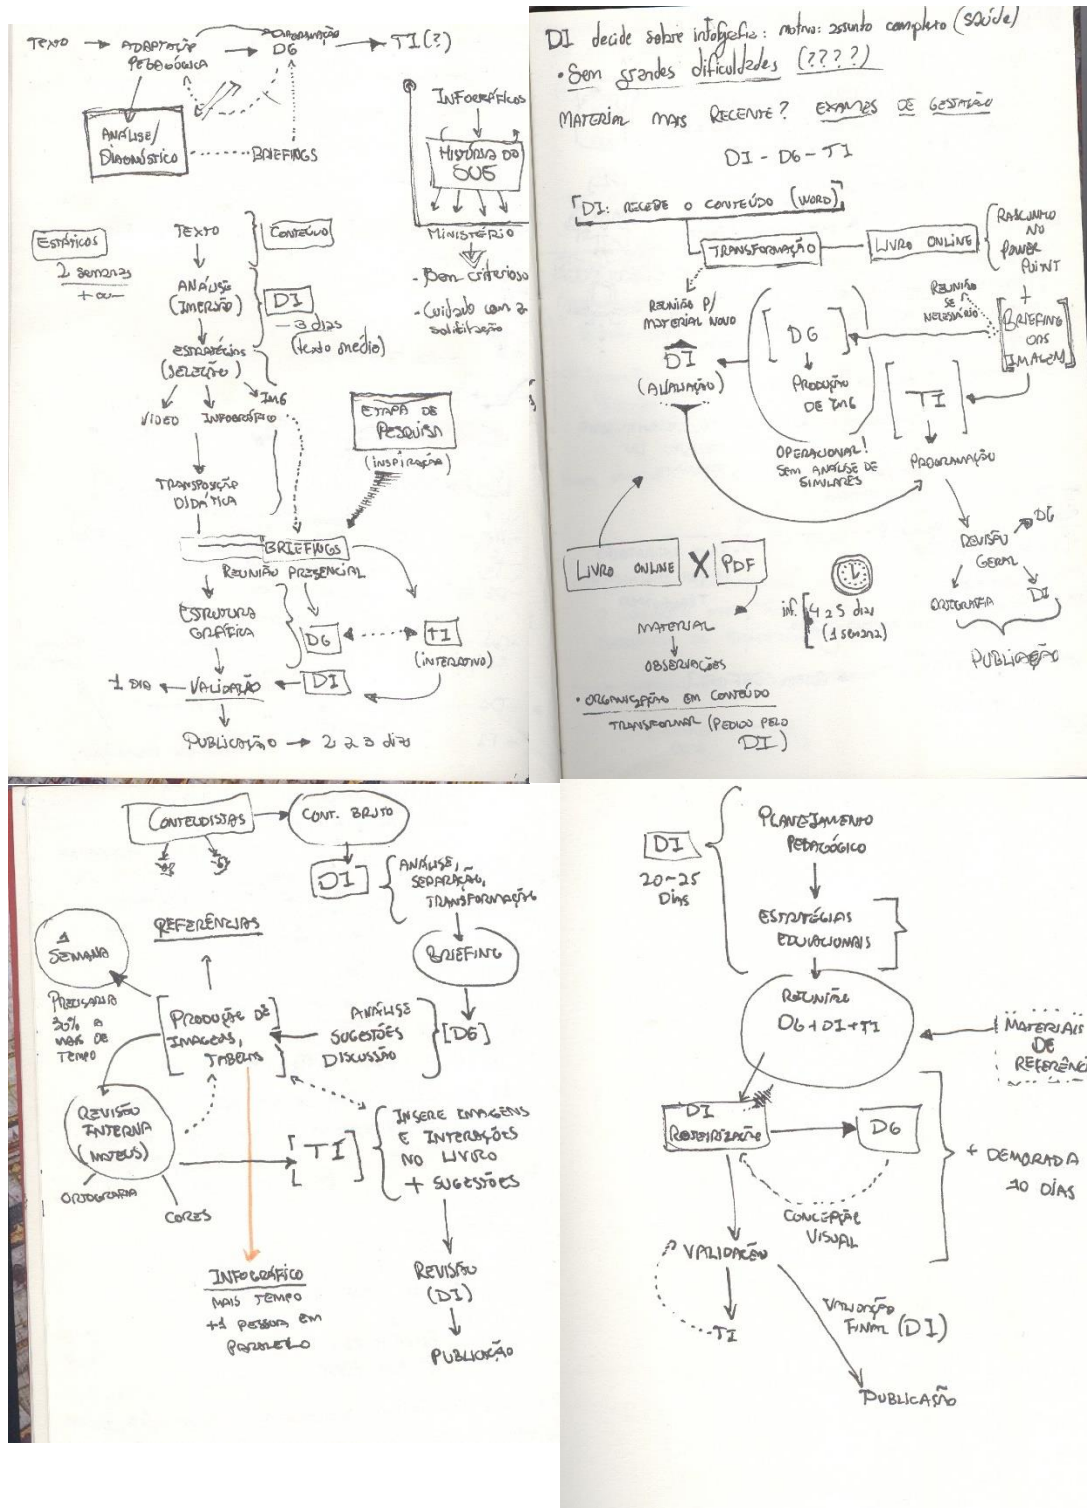 TEXTO
ADAPTAÇÃO
PEDAGÓGICA
DIAGRAMAÇÃO
DG
TI (?)
ANÁLISE/
DIAGNÓSTICO
BRIEFINGS
INFOGRÁFICOS
HISTÓRIA DO
SUS
MINISTÉRIO
- Bem criterioso
- Cuidado com a
solicitação
ESTÁTICOS
2 semanas
+ ou -
TEXTO
CONTEÚDO
ANÁLISE
(IMERSÃO)
DI
- 3 dias
(texto médio)
ESTRATÉGIAS
(SELEÇÃO)
VÍDEO
INFOGRÁFICO
IMG
ETAPA DE
PESQUISA
(INSPIRAÇÃO)
TRANSPOSIÇÃO
DIDÁTICA
BRIEFINGS
REUNIÃO PRESENCIAL
ESTRUTURA
GRÁFICA
DG
TI
(INTERATIVO)
1 DIA
VALIDAÇÃO
DI
PUBLICAÇÃO
2 a 3 dias
DI decide sobre infografia: motivo: assunto complexo (saúde)
• Sem grandes dificuldades (????)
MATERIAL MAIS RECENTE? EXAMES DE GESTAÇÃO
DI - DG - TI
DI: RECEBE O CONTEÚDO (WORD)
TRANSFORMAÇÃO
LIVRO ONLINE
RASCUNHO
NO
POWER
POINT
+
BRIEFING
DAS
IMAGEM
REUNIÃO P/
MATERIAL NOVO
REUNIÃO
SE
NECESSÁRIO
DI
(AVALIAÇÃO)
DG
PRODUÇÃO
DE IMG
TI
OPERACIONAL!
SEM ANÁLISE DE
SIMILARES
PROGRAMAÇÃO
REVISÃO
GERAL
DG
ORTOGRAFIA
DI
PUBLICAÇÃO
LIVRO ONLINE X PDF
inf. 4 a 5 dias
(1 semana)
MATERIAL
OBSERVAÇÕES
• ORGANIZAÇÃO EM CONTEÚDO
TRANSFORMAR (PEDIDO PELO
DI)
CONTEUDISTAS
CONT. BRUTO
DI
ANÁLISE,
SEPARAÇÃO,
TRANSFORMAÇÃO
BRIEFING
[DG]
ANÁLISE
SUGESTÕES
DISCUSSÃO
REFERÊNCIAS
1
SEMANA
PRECISARIA
30% A
MAIS DE
TEMPO
PRODUÇÃO DE
IMAGENS,
TABELAS
REVISÃO
INTERNA
(MATEUS)
ORTOGRAFIA
CORES
[TI]
INSERE IMAGENS
E INTERAÇÕES
NO LIVRO
+ SUGESTÕES
INFOGRÁFICO
MAIS TEMPO
+1 PESSOA EM
PARALELO
REVISÃO
(DI)
PUBLICAÇÃO
DI
20-25
Dias
PLANEJAMENTO
PEDAGÓGICO
ESTRATÉGIAS
EDUCACIONAIS
REUNIÃO
DG+DI+TI
MATERIAIS
DE
REFERÊNC
DI
ROTEIRIZAÇÃO
DG
+ DEMORADA
10 DIAS
CONCEPÇÃO
VISUAL
VALIDAÇÃO
TI
VALIDAÇÃO
FINAL (DI)
PUBLICAÇÃO